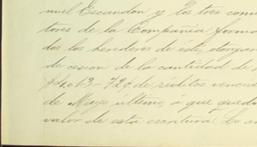 nuel Escandón y los tres comi
tores de la Compañia forma
dos los tenedores de este otorgan
de cesion de la cantidad de
72 de réditos vencid
de Mayo último, á que queda
valor de esta escritura